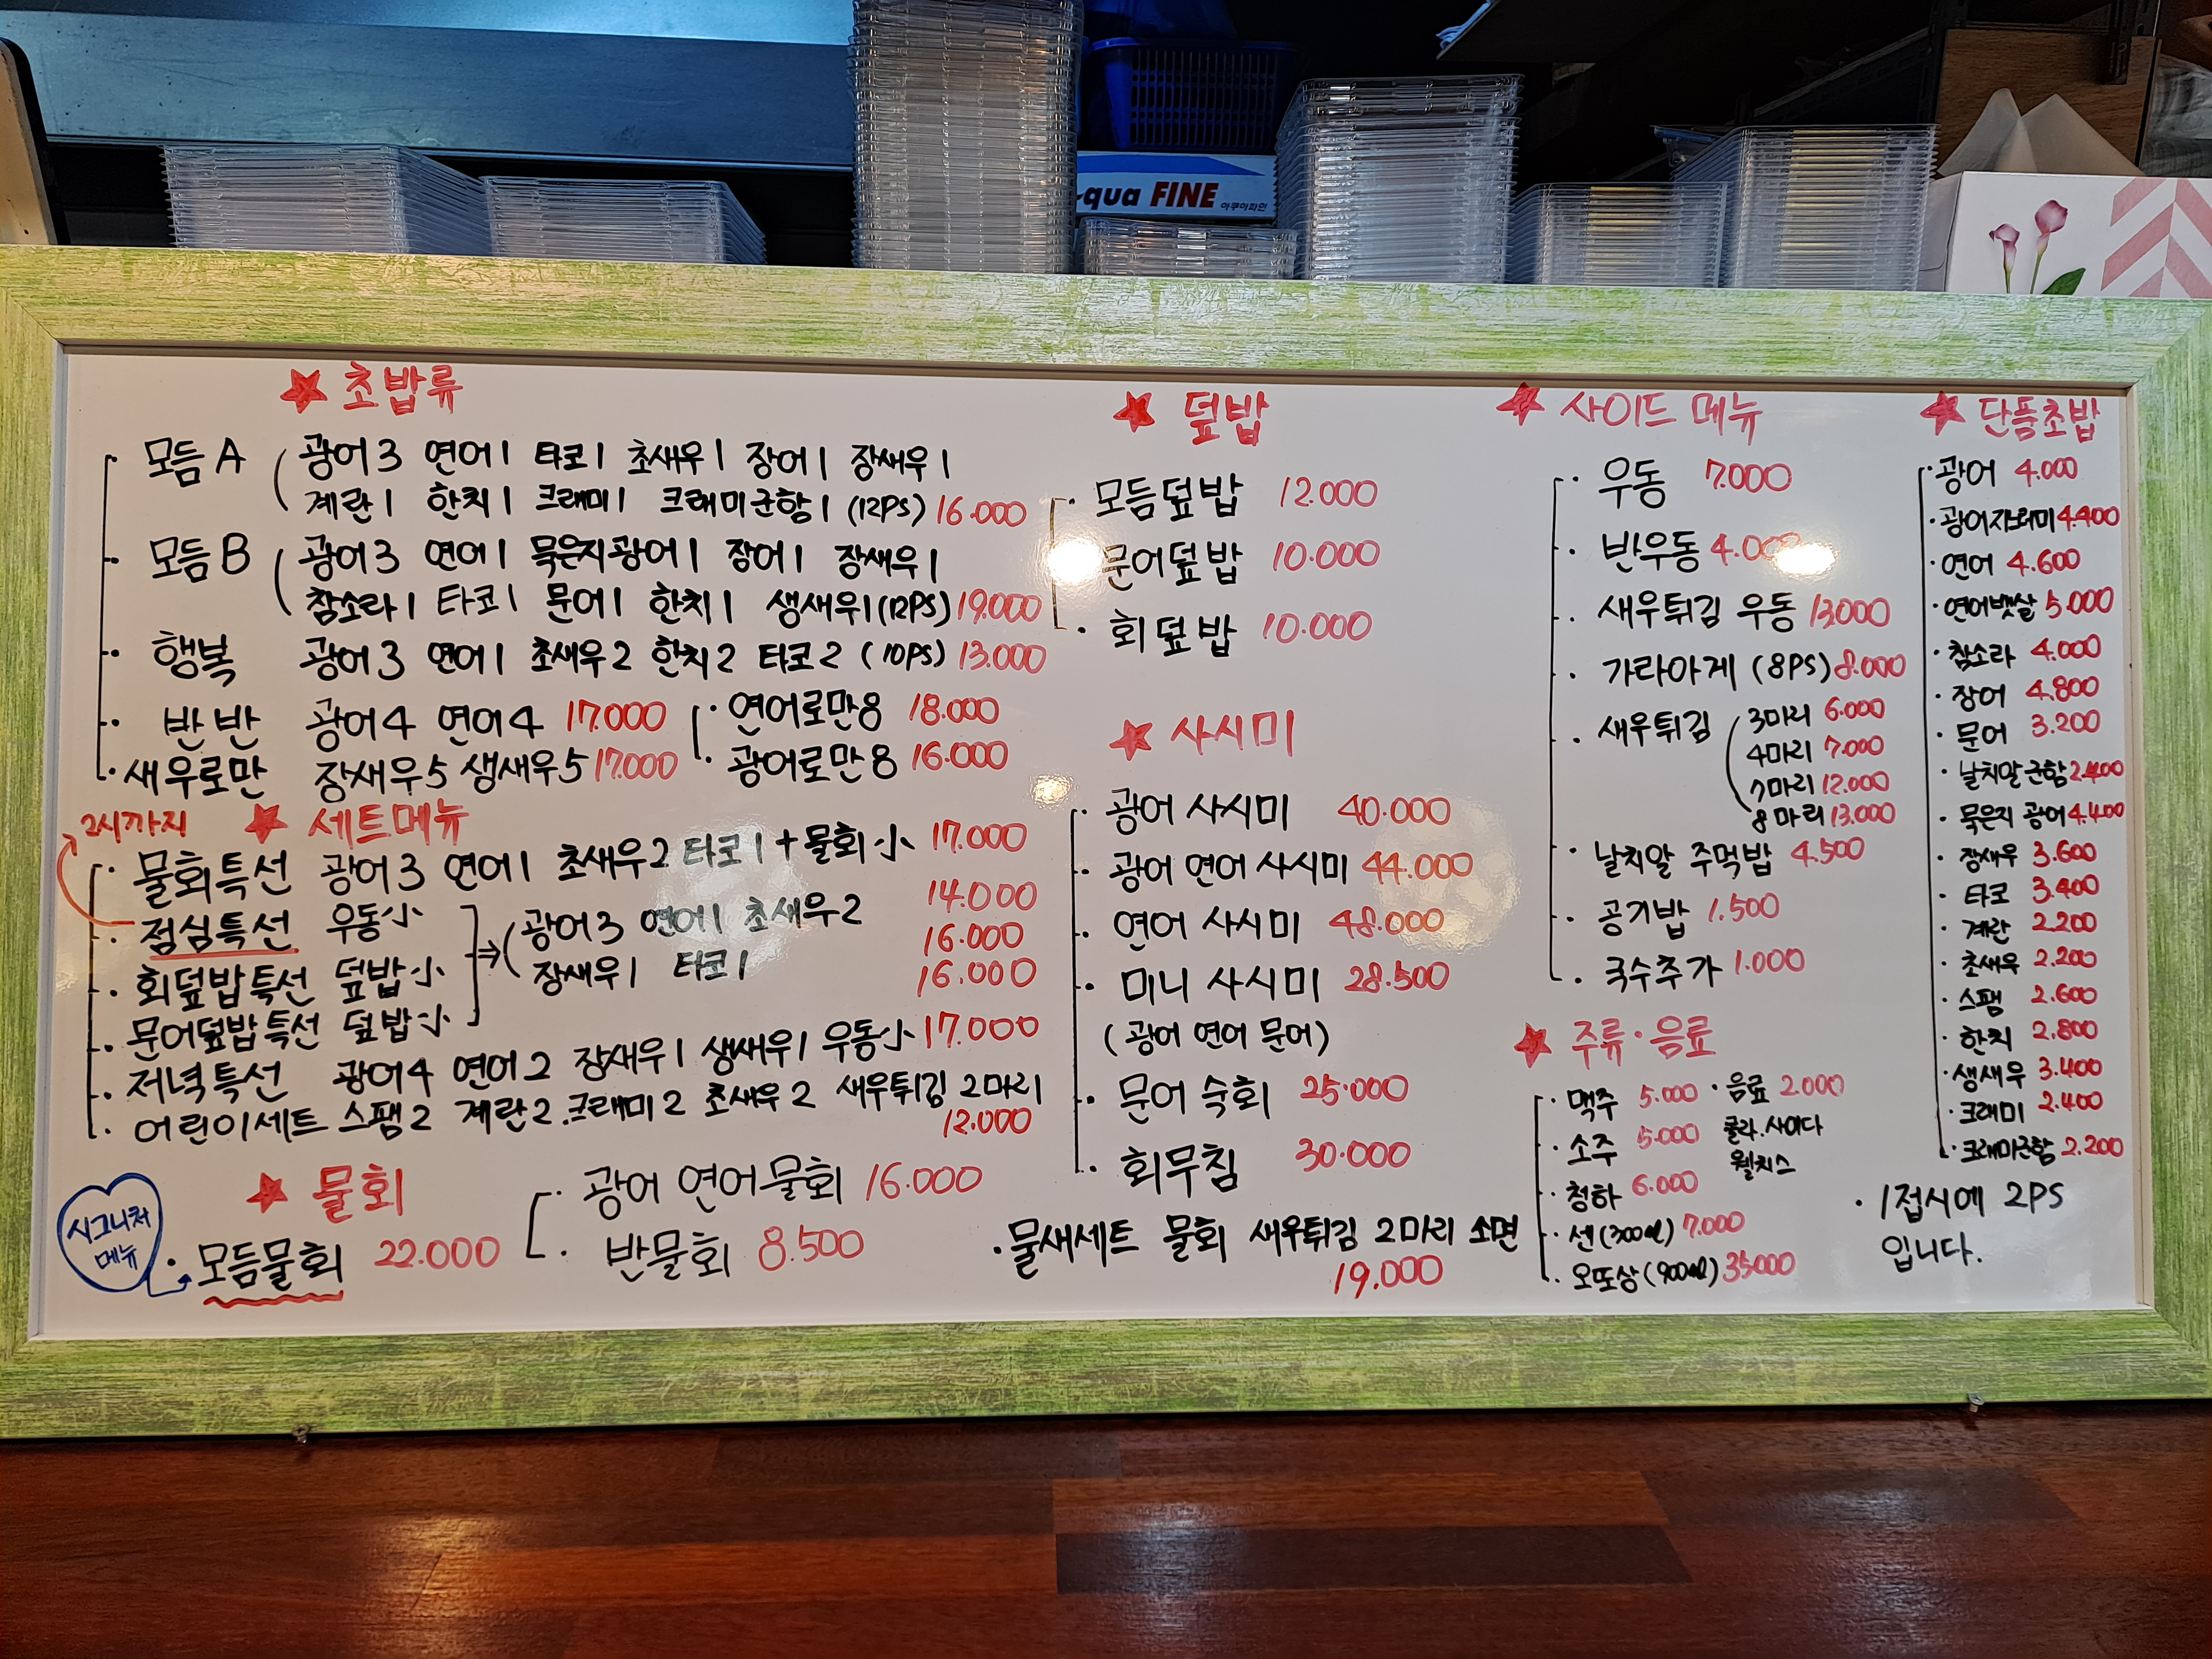 qua FINE
아쿠아파인
★ 초밥류
· 모듬A (광어3 연어1 타코1 초새우1 장어1 장새우1
계란1 한치1 크래미1 크래미군함1 (12PS) 16.000
· 모듬B (광어3 연어1 묵은지광어1 장어1 장새우1
참소라1 타코1 문어1 한치1 생새우1 (12PS) 19.000
· 행복 광어3 연어1 초새우2 한치2 타코2 (10PS) 13.000
· 반반 광어4 연어4 17.000
· 새우로만 장새우5 생새우5 17.000
· 연어로만8 18.000
· 광어로만8 16.000
2시까지
★ 세트메뉴
· 물회특선 광어3 연어1 초새우2 타코1 + 물회小 17.000
· 점심특선 우동小 14.000
· 회덮밥특선 덮밥小 16.000
· 문어덮밥특선 덮밥小 16.000
⇒ (광어3 연어1 초새우2
장새우1 타코1
· 저녁특선 광어4 연어2 장새우1 생새우1 우동小 17.000
· 어린이세트 스팸2 계란2. 크래미2 초새우2 새우튀김 2마리
12.000
★ 물회
시그니처
메뉴
· 모듬물회 22.000
· 광어 연어물회 16.000
· 반물회 8.500
★ 덮밥
· 모듬덮밥 12.000
문어덮밥 10.000
· 회덮밥 10.000
★ 사시미
· 광어 사시미 40.000
· 광어 연어 사시미 44.000
· 연어 사시미 48.000
· 미니 사시미 28.500
(광어 연어 문어)
· 문어 숙회 25.000
· 회무침 30.000
· 물새세트 물회 새우튀김 2마리 소면
19.000
★ 사이드 메뉴
· 우동 7.000
· 반우동 4.000
· 새우튀김 우동 13.000
· 가라아게 (8PS) 8.000
· 새우튀김 (3마리 6.000
4마리 7.000
7마리 12.000
8마리 13.000
· 날치알 주먹밥 4.500
· 공기밥 1.500
· 국수추가 1.000
★ 주류·음료
· 맥주 5.000
· 소주 5.000
· 청하 6.000
· 센(300ml) 7.000
· 오또상(900ml) 35000
· 음료 2.000
콜라.사이다
웰치스
★ 단품초밥
· 광어 4.000
· 광어지느러미 4.400
· 연어 4.600
· 연어뱃살 5.000
· 참소라 4.000
· 장어 4.800
· 문어 3.200
· 날치알군함 2.400
· 묵은지 광어 4.400
· 장새우 3.600
· 타코 3.400
· 계란 2.200
· 초새우 2.200
· 스팸 2.600
· 한치 2.800
· 생새우 3.400
· 크래미 2.400
· 크래미군함 2.200
· 1접시에 2PS
입니다.